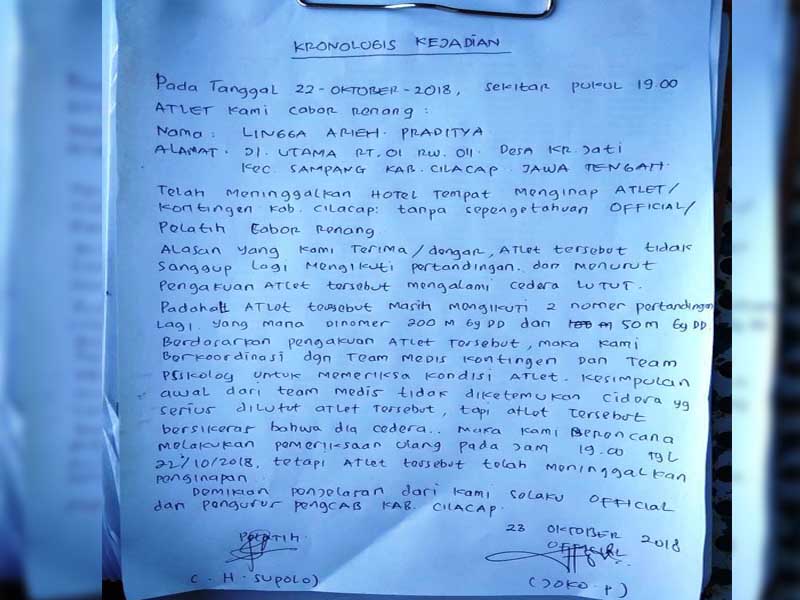 KRONOLOGIS KEJADIAN
Pada Tanggal 22-OKTOBER-2018, sekitar pukul 19.00
ATLET Kami Cabor Renang:
Nama: LINGGA ARIEH PRADITYA
ALAMAT. Jl. UTAMA RT.01 RW.011. Desa KR. Jati
KEC. SAMPANG KAB. CILACAP JAWA TENGAH.
Telah Meninggalkan HOTEL Tempat Menginap ATLET/
Kontingen Kab. Cilacap: tanpa sepengetahuan OFFICIAL/
Pelatih Cabor Renang
Alasan yang Kami Terima/dengar, ATLet tersebut tidak
Sanggup Lagi Mengikuti pertandingan. dan menurut
Pengakuan ATLet tersebut mengalami cedera LUTUT.
Padahal ATLet tersebut Masih Mengikuti 2 nomer pertandingan
Lagi. yang mana Dinomer 200 M Gy DD dan 50m Gy DD.
Berdasarkan pengakuan ATLet Tersebut, maka kami
Berkoordinasi dgn Team MEDIS Kontingen Dan Team
PSIKOLOG untuk Memeriksa Kondisi ATLET. Kesimpulan
awal dari team medis tidak diketemukan Cidera yg
serius dilutut atlet Tersebut, tapi atlet Tersebut
bersikeras bahwa dia cedera.. Maka Kami Berencana
melakukan pemeriksaan ulang pada Jam 19.00 TgL
22/10/2018, tetapi ATLet tersebut telah Meninggalkan
penginapan
Demikian penjelasan dari kami Selaku OFFICIAL
dan Pengurus pengCAB KAB. CILACAP.
23 OKTOBER 2018
PELATIH OFFICIAL
(C. H. SUPOLO) (JOKO. P)